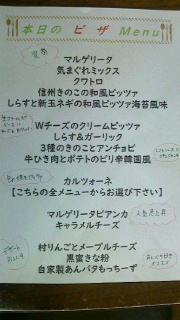 本日の ピザ Menu
定番
マルゲリータ
気まぐれミックス
クワトロ
信州きのこの和風ピッツァ
しらすと新玉ネギの和風ピッツァ海苔風味
Wチーズのクリームピッツァ
しらす&ガーリック
3種のきのことアンチョビ
牛ひき肉とポテトのピリ辛韓国風
カルツォーネ
【こちらの全メニューからお選び下さい】
マルゲリータビアンカ
人気急上昇
キャラメルチーズ
村りんごとメープルチーズ
黒蜜きな粉
自家製あんバタもっちーず